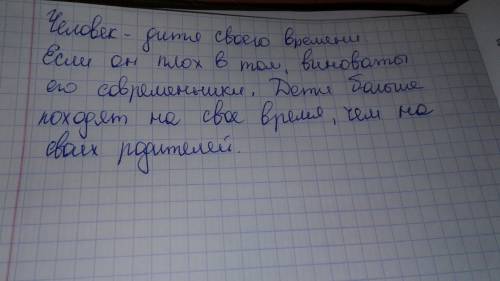 Человек - дитя своего времени
Если он плох в том, виноваты
его современники. Дети больше
походят на свое время, чем на
своих родителей.